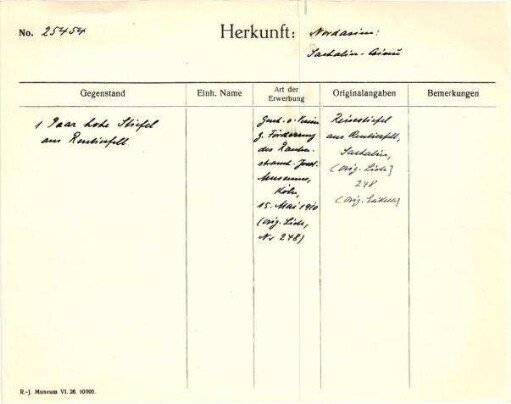 No. 25454
Herkunft: Nordasien:
Sachalin-Ainu
Gegenstand
Einh. Name
Art der
Erwerbung
Originalangaben
Bemerkungen
1 Paar hohe Stiefel
aus Rentierfell
Gesch. v. Verein
z. Förderung
des Rauten-
strauch-Joest
Museums,
Köln,
15. Mai 1910
(Orig. Liste,
No 248)
Reisestiefel
aus Rentierfell,
Sachalin,
(Orig. Liste)
248
(Orig. Etikett)
R.-J. Museum VI. 26. 10000.